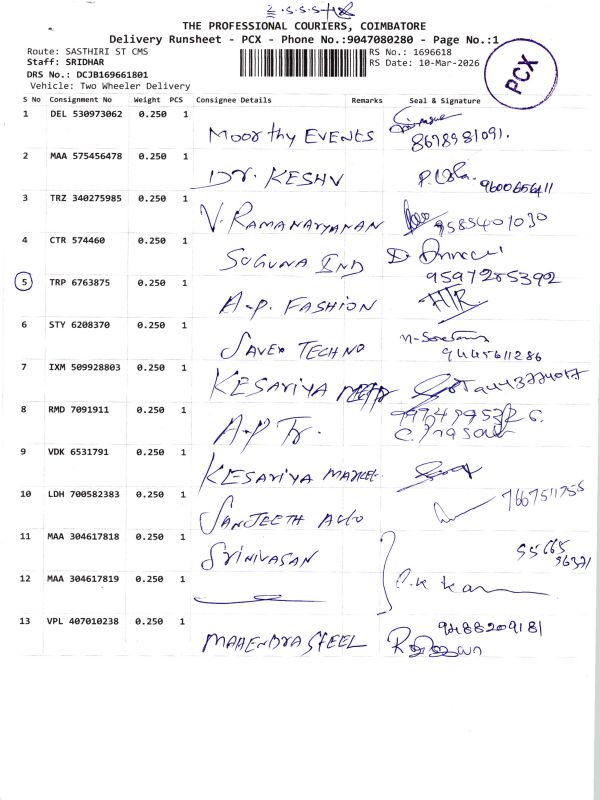 THE PROFESSIONAL COURIERS, COIMBATORE
Delivery Runsheet - PCX - Phone No.:9047080280 - Page No.:1
Route: SASTHIRI ST CMS
RS No.: 1696618
Staff: SRIDHAR
RS Date: 10-Mar-2026
DRS No.: DCJB169661801
Vehicle: Two Wheeler Delivery
PCX
S No Consignment No Weight PCS Consignee Details Remarks Seal & Signature
1 DEL 530973062 0.250 1
Moorthy EVENTS 8678981091.
2 MAA 575456478 0.250 1
DR. KESHV 9600656411
3 TRZ 340275985 0.250 1
V. RAMANAYANAN 9585401030
4 CTR 574460 0.250 1
SUGUNA IND
9597285392
5 TRP 6763875 0.250 1
A.P. FASHION
6 STY 6208370 0.250 1
SAVEX TECHNO 9445611286
7 IXM 509928803 0.250 1
KESARIYA
8 RMD 7091911 0.250 1
A.P Tr.
9 VDK 6531791 0.250 1
KESARIYA MARKET
10 LDH 700582383 0.250 1
SANJEETH AUTO 7667511755
11 MAA 304617818 0.250 1
SRINIVASAN 95665
96371
12 MAA 304617819 0.250 1
13 VPL 407010238 0.250 1
MAHENDRA STEEL 9488209181